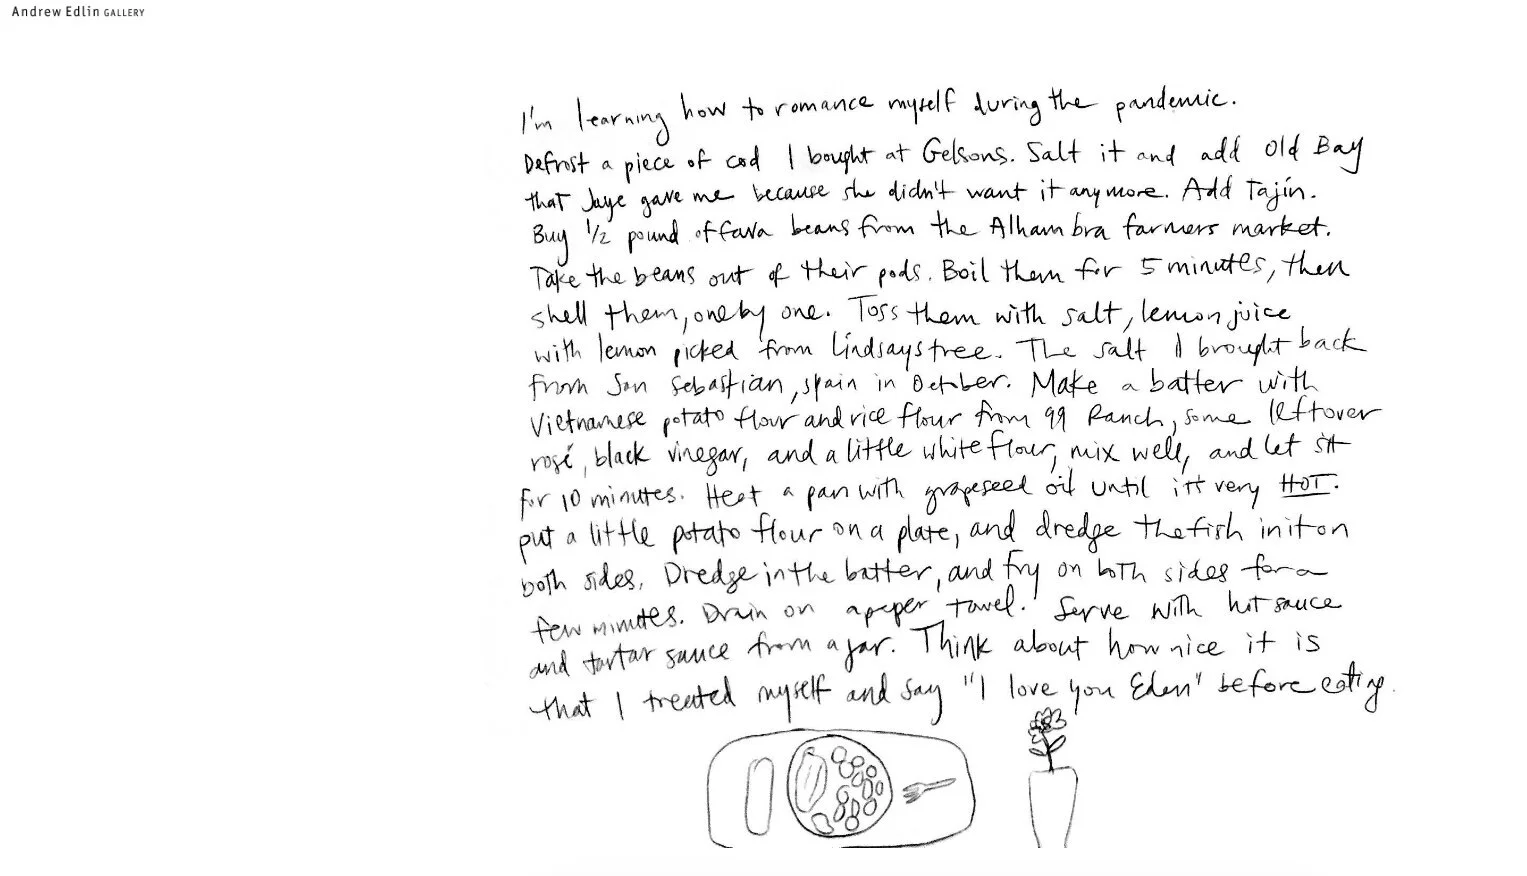 Andrew Edlin GALLERY
I'm learning how to romance myself during the pandemic.
Defrost a piece of cod I bought at Gelsons. Salt it and add Old Bay
that Jaye gave me because she didn't want it anymore. Add Tajín.
Buy 1/2 pound of fava beans from the Alhambra farmers market.
Take the beans out of their pods. Boil them for 5 minutes, then
shell them, one by one. Toss them with salt, lemon juice
with lemon picked from Lindsays tree. The salt I brought back
from San Sebastian, Spain in October. Make a batter with
Vietnamese potato flour and rice flour from 99 Ranch, some leftover
rosé, black vinegar, and a little white flour, mix well, and let sit
for 10 minutes. Heat a pan with grapeseed oil until it's very HOT.
put a little potato flour on a plate, and dredge the fish in it on
both sides. Dredge in the batter, and fry on both sides for a
few minutes. Drain on a paper towel. Serve with hot sauce
and tartar sauce from a jar. Think about how nice it is
that I treated myself and say "I love you Eden" before eating.